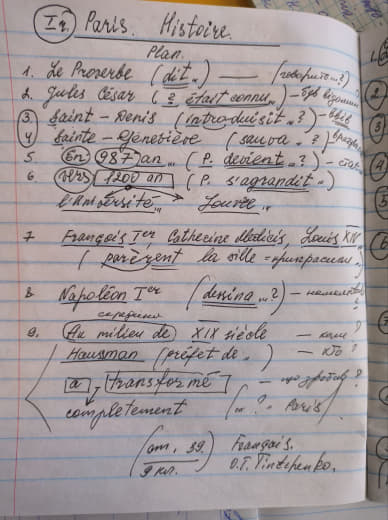 I ч. Paris. Histoire.
Plan.
1. Le Proverbe (dit..) — (говорить..?)
2. Jules César (? était connu..) – був відомий
3 Saint-Denis (introduisit..?) – ввів
4 Sainte-Geneviève (sauva..?)
5 En 987 an... (P. devient..?) – стає
6 vers 1200 an (P. s'agrandit..)
l'université... Louvre...
7. François Ier, Catherine Medicis, Louis XIV
(parèrent la ville = прикрасили
8. Napoléon Ier (dessina...?) –
середина
9. Au milieu de XIX siècle – коли?
Hausman (préfet de..) – хто?
a transformé – що зробив?
complètement (..?.. Paris)
(ст. 39. Français.
9 кл.) O.T. Tintchenko.